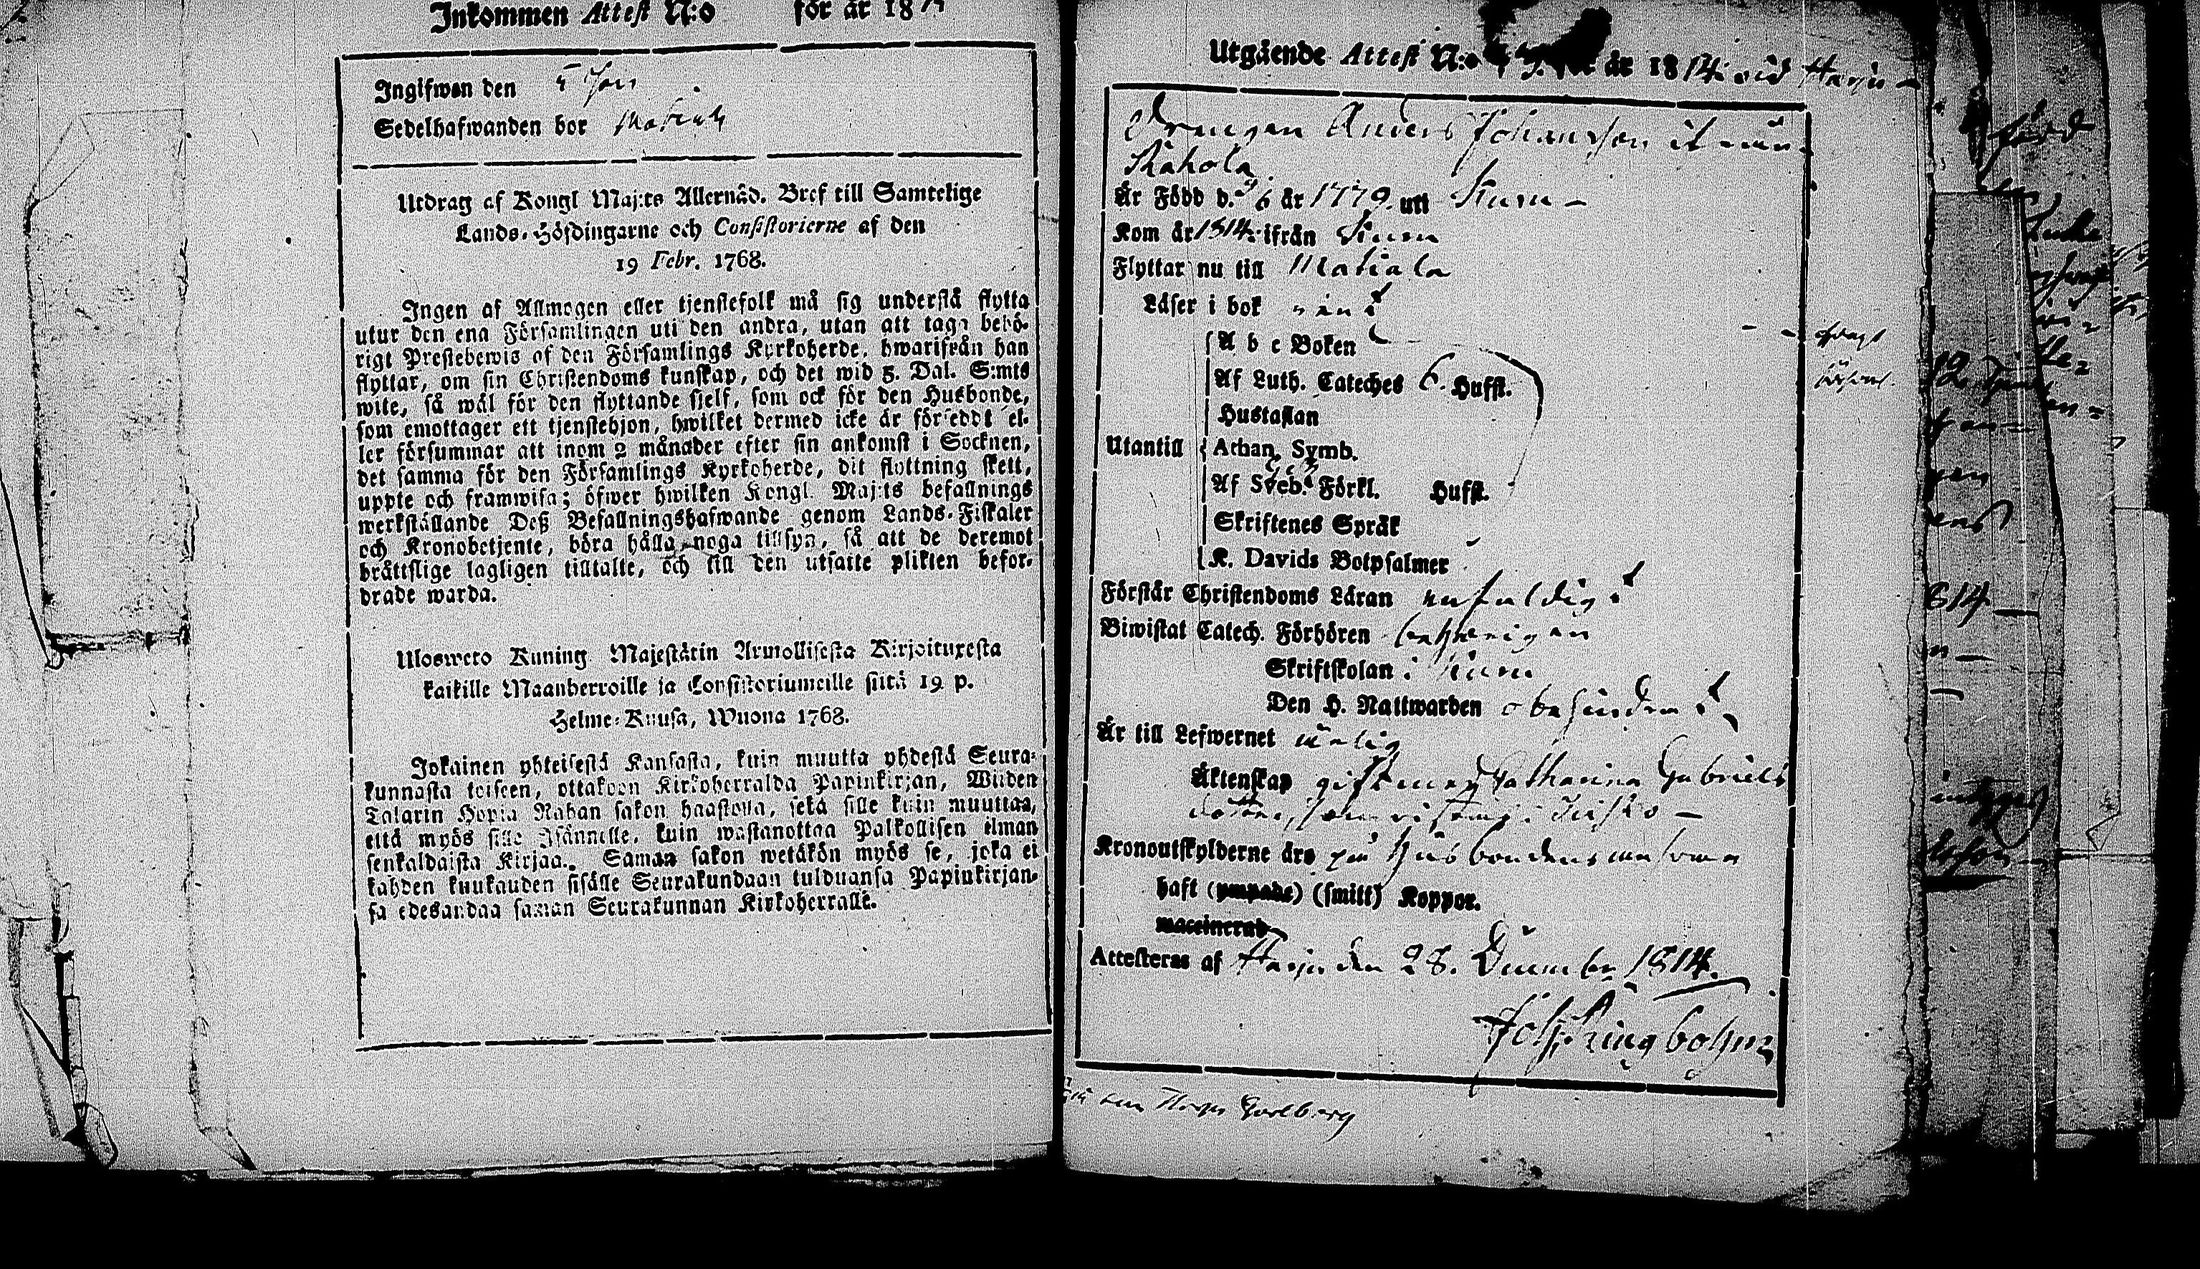 Inkommen Attest N:o för år 18
Ingifwen den 5 Jan
Sedelhafwanden bor Matiala
Utdrag af Kongl Maj:ts Allernåd. Bref till Samtelige
Lands-Höfdingarne och Consistorierne af den
19 Febr. 1768.
Ingen af Allmogen eller tjenstefolk må sig understå flytta
utur den ena Församlingen uti den andra, utan att taga behö-
rigt Prestebewis af den Församlings Kyrkoherde, hwarifrån han
flyttar, om sin Christendoms kunskap, och det wid 5. Dal. S:mts
wite, så wäl för den flyttande sielf, som ock för den Husbonde,
som emottager ett tjenstehjon, hwilket dermed icke är försedt el-
ler försummar att inom 2 månader efter sin ankomst i Socknen,
det samma för den Församlings Kyrkoherde, dit flyttning skett,
uppte och framwisa; öfwer hwilken Kongl. Maj:ts befallnings
werkställande Deß Befallningshafwande genom Lands-Fiskaler
och Kronobetjente, böra hålla noga tillsyn, så att de deremot
bråttslige lagligen tilltalte, och till den utsatte plikten befor-
drade warda.
Ulosweto Kuning. Majestätin Armollisesta Kirjoituxesta
kaikille Maanherroille ja Consistoriumeille siitä 19 p.
Helme-Kuusa, Wuona 1768.
Jokainen yhteisestä Kansasta, kuin muutta yhdestä Seura-
kunnasta toiseen, ottakoon Kirkoherralda Papinkirjan, Wiiden
Talarin Hopia Rahan sakon haastolla, sekä sille kuin muuttaa,
että myös sille Isännelle, kuin wastanottaa Palkollisen ilman
senkaldaista Kirjaa. Saman sakon wetäkön myös se, joka ei
kahden kuukauden sisälle Seurakundaan tulduansa Papinkirjan-
sa edesandaa saman Seurakunnan Kirkoherralle.
Utgående Attest N:o år 1814 vid Harju
Drengen Anders Johansson ifrån
Rahola
Är Född d. 9/6 år 1779. uti Kumo
Kom år 1814 ifrån Kumo
Flyttar nu till Matiala
Läser i bok rent
Utantill
A b c Boken
Af Luth. Cateches 6 Hufst.
Hustaflan
Athan. Symb.
Af Sveb. Förkl. Hufst.
Skriftenes Språk
K. Davids Botpsalmer
Förstår Christendoms Läran enfaldigt
Biwistat Catech. Förhören
Skriftskolan i Kumo
Den H. Nattwarden obehindradt
Är till Lefwernet ärlig
Äktenskap gift med Catharina Gabriels
dotter, som vistas i
Kronoutskylderne äro på Husbondens
haft (ympade) (smitt) Koppor.
waccinerad
Attesteras af Harju den 28. December 1814.
Joh. Ringbohm
Carlberg